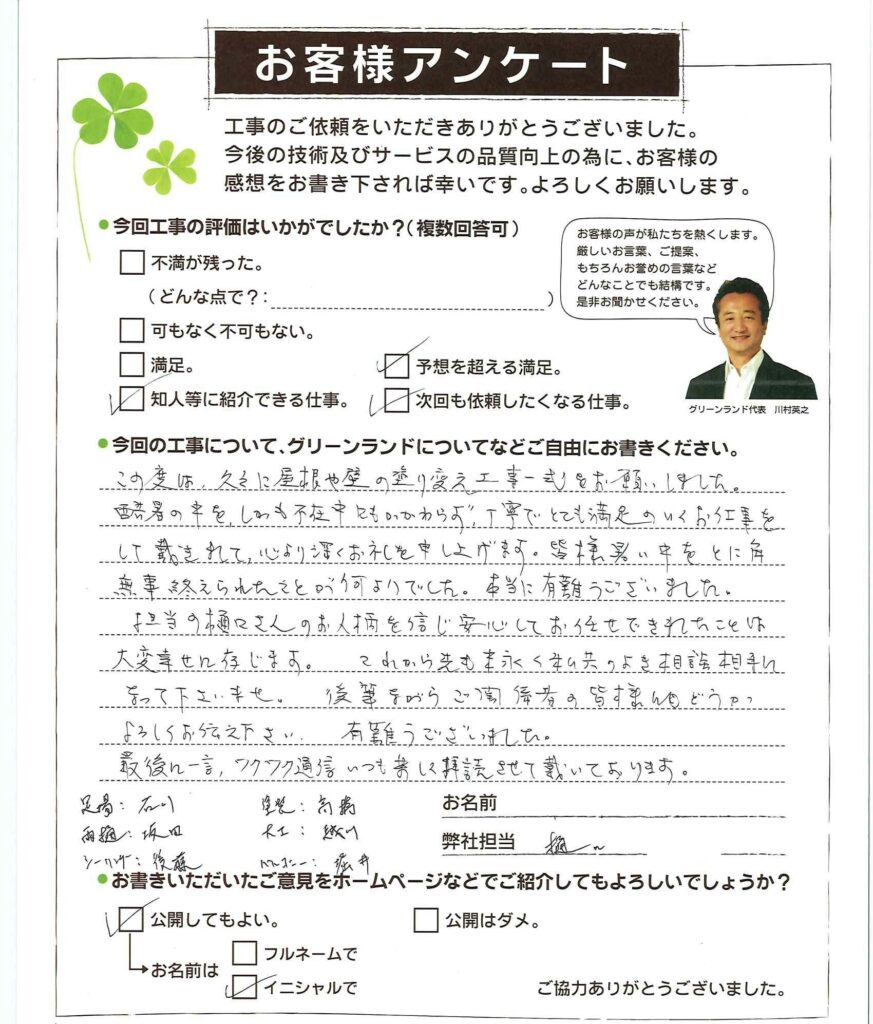 お客様アンケート
工事のご依頼をいただきありがとうございました。
今後の技術及びサービスの品質向上の為に、お客様の
感想をお書き下されば幸いです。よろしくお願いします。
今回工事の評価はいかがでしたか？（複数回答可）
不満が残った。
（どんな点で？：）
可もなく不可もない。
満足。
予想を超える満足。
知人等に紹介できる仕事。
次回も依頼したくなる仕事。
お客様の声が私たちを熱くします。
厳しいお言葉、ご提案、
もちろんお誉めの言葉など
どんなことでも結構です。
是非お聞かせください。
グリーンランド代表　川村英之
今回の工事について、グリーンランドについてなどご自由にお書きください。
この度は、久々に屋根や壁の塗り変え工事一式をお願いしました。
酷暑の中を、しかも不在中にもかかわらず、丁寧でとても満足のいくお仕事を
して戴きまして、心より深くお礼を申し上げます。皆様暑い中をとに角
無事終えられたことが何よりでした。本当に有難うございました。
担当の樋口さんのお人柄を信じ安心してお任せできましたことは
大変幸せに存じます。これから先も末永く私共のよき相談相手に
なって下さいませ。後筆ながらご関係者の皆様にもどうか
よろしくお伝え下さい。有難うございました。
最後に一言、ワクワク通信いつも楽しく拝読させて戴いております。
足場：石川
塗装：高橋
雨樋：坂田
大工：
シーリング：後藤
堀井
お名前
弊社担当
お書きいただいたご意見をホームページなどでご紹介してもよろしいでしょうか？
公開してもよい。
公開はダメ。
お名前は
フルネームで
イニシャルで
ご協力ありがとうございました。